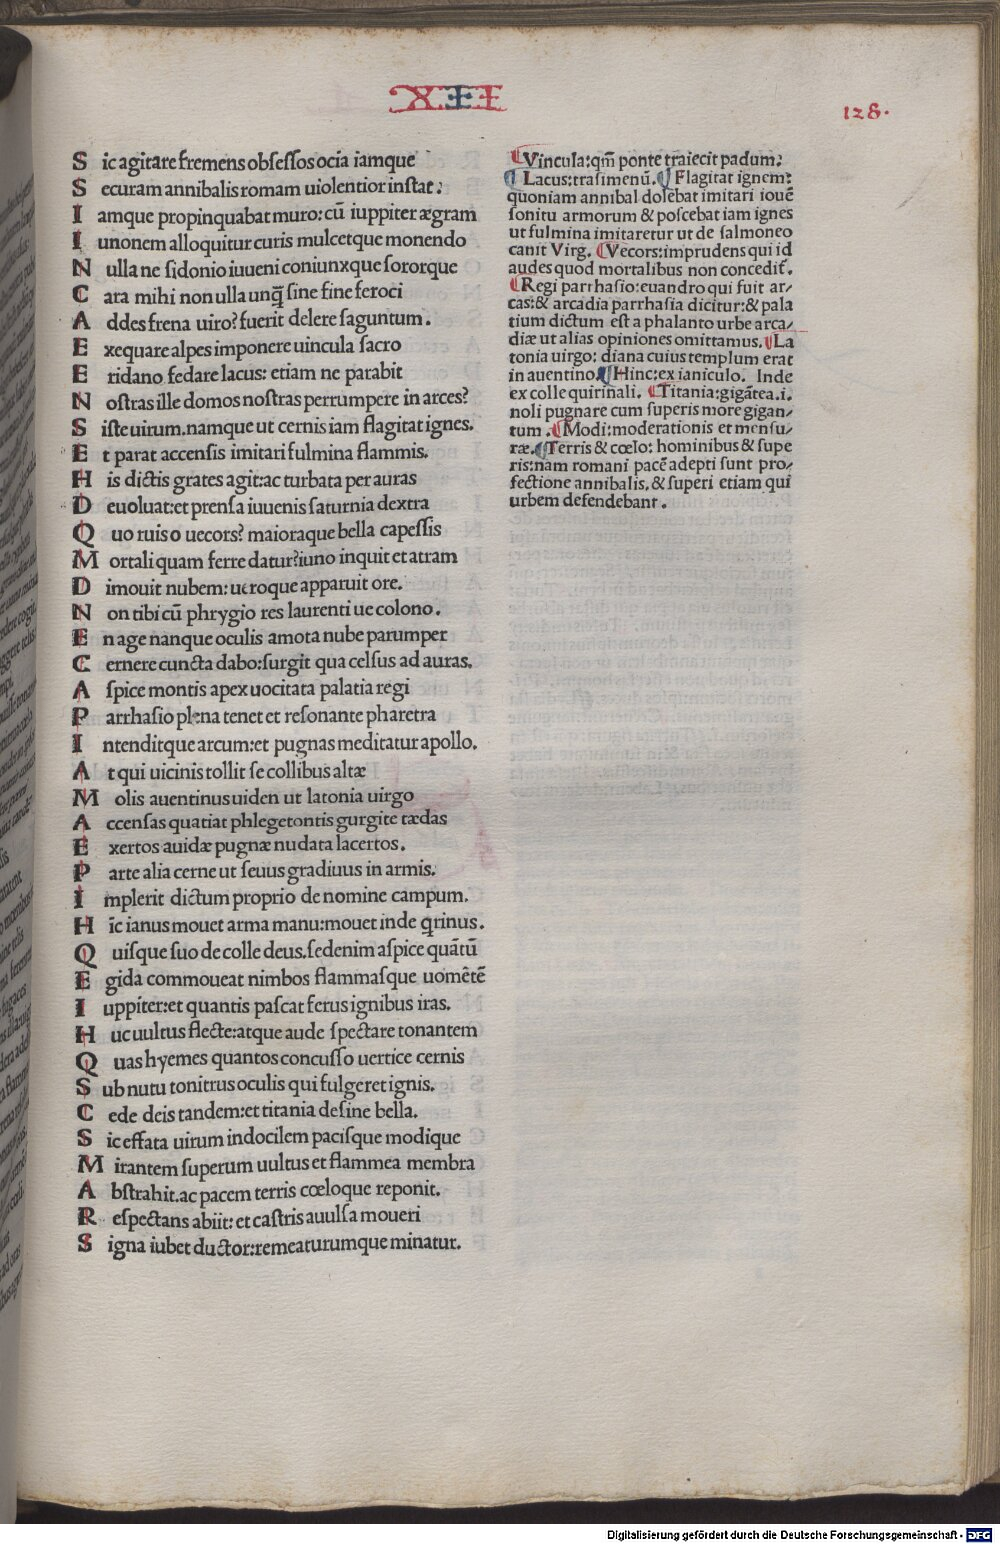 XII
128.
S ic agitare fremens obſeſſos ocia iamque
S ecuram annibalis romam uiolentior inſtat:
I amque propinquabat muro: cū iuppiter ægram
I unonem alloquitur curis mulcetque monendo
N ulla ne ſidonio iuueni coniunxque ſororque
C ara mihi non ulla unq̄ ſine fine feroci
A ddes frena uiro? fuerit delere ſaguntum.
E xequare alpes imponere uincula ſacro
E ridano fedare lacus: etiam ne parabit
N oſtras ille domos noſtras perrumpere in arces?
S iſte uirum. namque ut cernis iam flagitat ignes.
E t parat accenſis imitari fulmina flammis.
H is dictis grates agit: ac turbata per auras
D euoluat: et prenſa iuuenis ſaturnia dextra
Q uo ruis o uecors? maioraque bella capeſſis
M ortali quam ferre datur? iuno inquit et atram
D imouit nubem: ueroque apparuit ore.
N on tibi cū phrygio res laurenti ue colono.
E n age nanque oculis amota nube parumper
C ernere cuncta dabo: ſurgit qua celſus ad auras.
A ſpice montis apex uocitata palatia regi
P arrhaſio plena tenet et reſonante pharetra
I ntenditque arcum: et pugnas meditatur apollo.
A t qui uicinis tollit ſe collibus altæ
M olis auentinus uiden ut latonia uirgo
A ccenſas quatiat phlegetontis gurgite tædas
E xertos auidæ pugnæ nudata lacertos.
P arte alia cerne ut ſeuus gradiuus in armis.
I mplerit dictum proprio de nomine campum.
H īc ianus mouet arma manu: mouet inde qrinus.
Q uiſque ſuo de colle deus. ſed enim aſpice quātū
E gida commoueat nimbos flammaſque uomētē
I uppiter: et quantis paſcat ferus ignibus iras.
H uc uultus flecte: atque aude ſpectare tonantem
Q uas hyemes quantos concuſſo uertice cernis
S ub nutu tonitrus oculis qui fulgeret ignis.
C ede deis tandem: et titania deſine bella.
S ic effata uirum indocilem paciſque modique
M irantem ſuperum uultus et flammea membra
A bſtrahit. ac pacem terris cœloque reponit.
R eſpectans abiit: et caſtris auulſa moueri
S igna iubet ductor: remeaturumque minatur.
Vincula: qm̄ ponte traiecit padum:
Lacus: traſimenū. Flagitat ignem:
quoniam annibal dolebat imitari iouē
ſonitu armorum & poſcebat iam ignes
ut fulmina imitaretur ut de ſalmoneo
canit Virg. Vecors: imprudens qui id
audes quod mortalibus non concedit̄.
Regi parrhaſio: euandro qui fuit ar-
cas: & arcadia parrhaſia dicitur: & pala
tium dictum eſt a phalanto urbe arca-
diæ ut alias opiniones omittamus. La
tonia uirgo: diana cuius templum erat
in auentino. Hinc: ex ianiculo. Inde
ex colle quirinali. Titania: gigātea. i.
noli pugnare cum ſuperis more gigan-
tum. Modi: moderationis et menſu-
ræ. Terris & cœlo: hominibus & ſupe
ris: nam romani pacē adepti ſunt pro-
fectione annibalis. & ſuperi etiam qui
urbem defendebant.
Digitalisierung gefördert durch die Deutsche Forschungsgemeinschaft - DFG